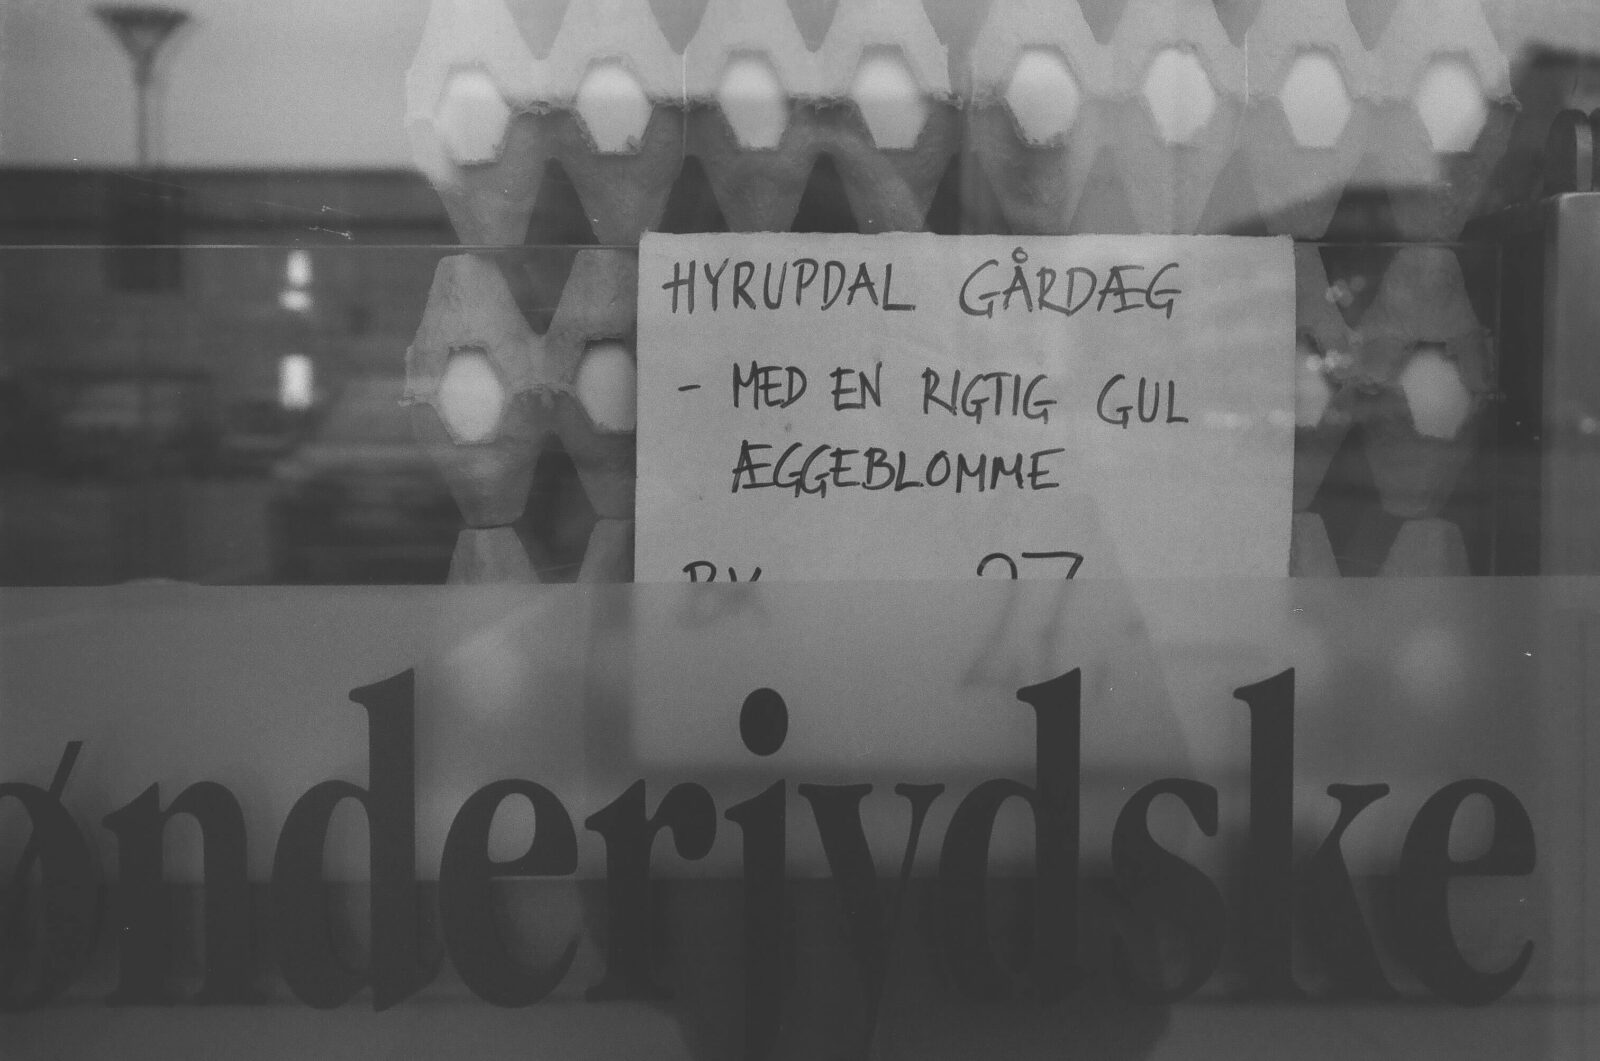 HYRUPDAL GÅRDÆG
- MED EN RIGTIG GUL
ÆGGEBLOMME
27,
ønderjydske